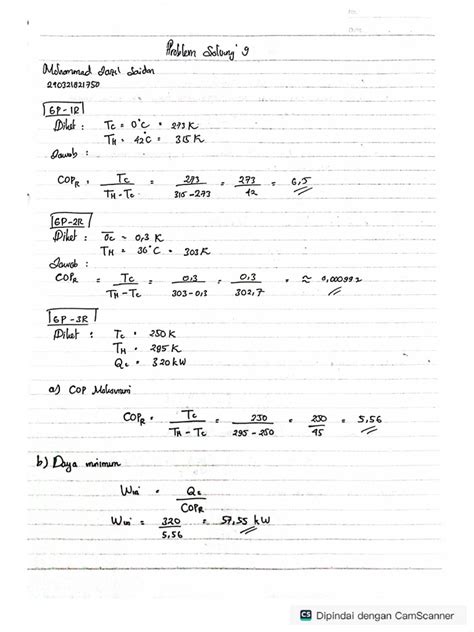 No.
Date
Problem Solving 9
Mohammad Saidan
210321821750
6P-1R
Diket : Tc = 0°C = 273 K
TH = 42°C = 315 K
Jawab :
COPR = Tc / TH - Tc = 273 / 315 - 273 = 273 / 42 = 6,5
6P-2R
Diket : Tc = 0,3 K
TH = 30°C = 303 K
Jawab :
COPR = Tc / TH - Tc = 0,3 / 303 - 0,3 = 0,3 / 302,7 = ≈ 0,000992
6P-3R
Diket : Tc = 250 K
TH = 295 K
Qc = 320 kW
a) COP Maksimum
COPR = Tc / TH - Tc = 250 / 295 - 250 = 250 / 45 = 5,56
b) Daya minimum
Win = Qc / COPR
Win = 320 / 5,56 = 57,55 kW
CS Dipindai dengan CamScanner